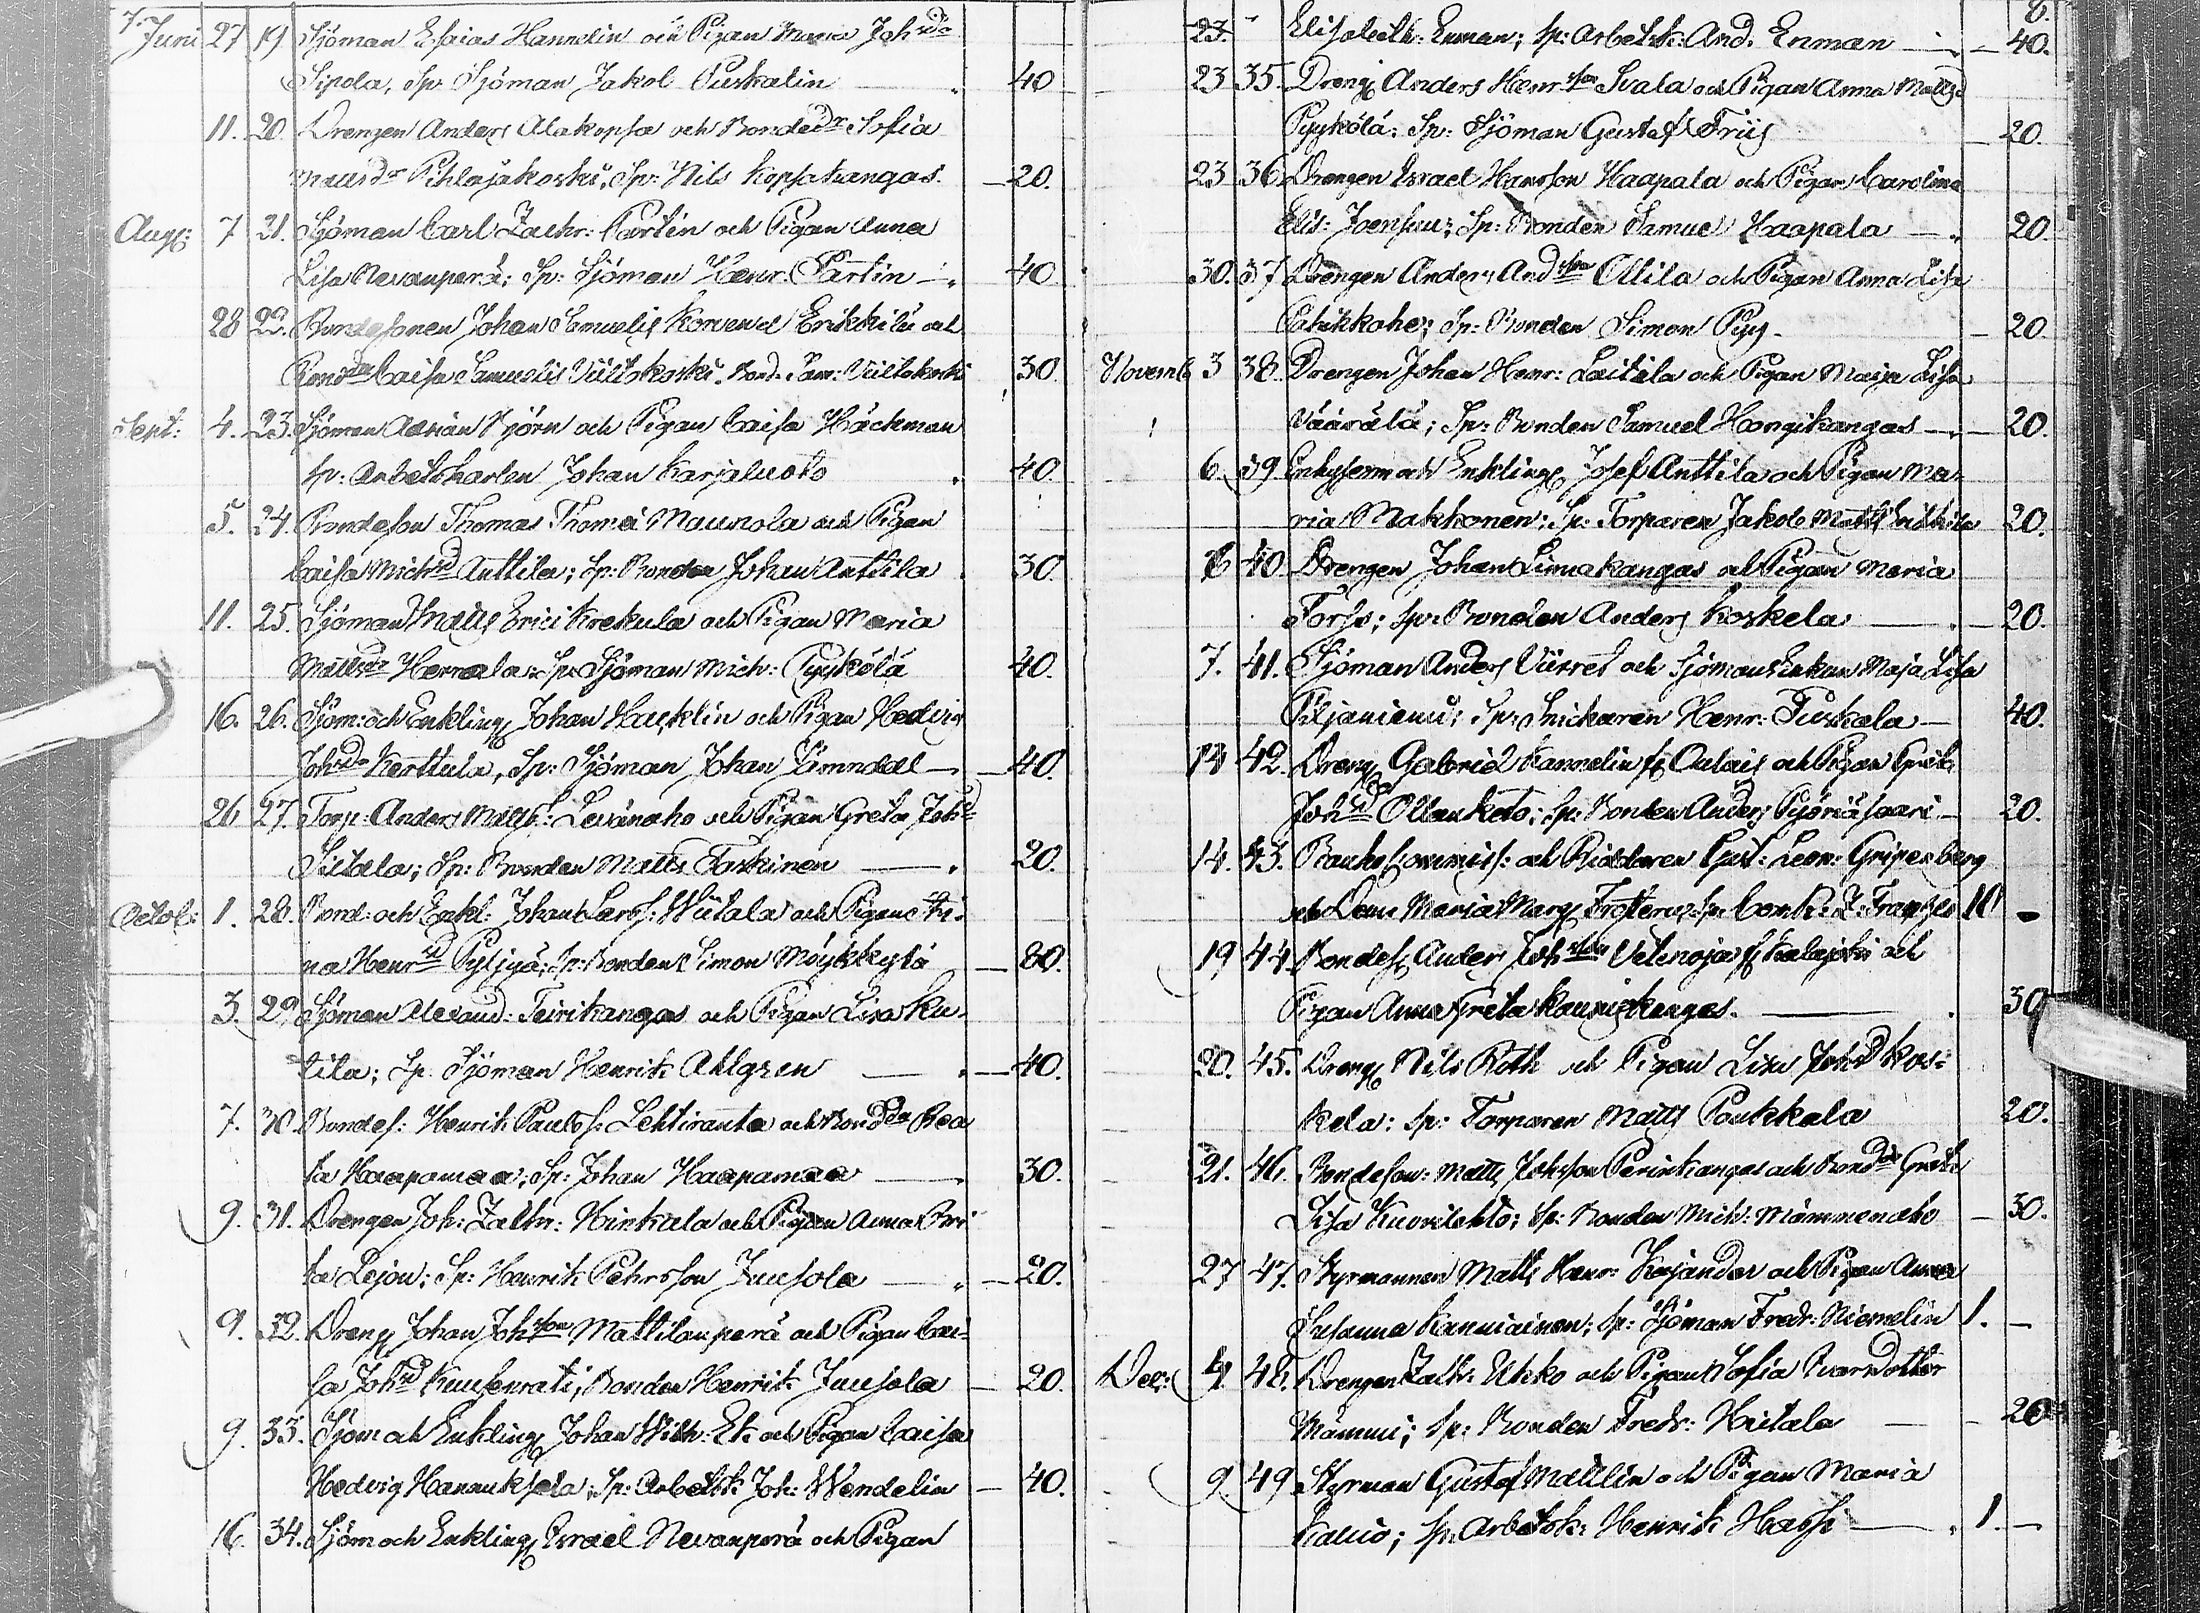 7.
Juni 27 19 Sjöman Esaias Hannelin och Pigan Maria Johsdr
Sipola, Sp. Sjöman Jakob Tuskalin 40
11. 20. Drengen Anders Alakopsa och Bondedr Sofia
Mattsdr Pihlajakoski, Sp: Nils Kopsakangas. 20.
Aug: 7 21. Sjöman Carl Zachr: Partin och Pigan Anna
Lisa Nevanperä; Sp: Sjöman Henr: Partin 40
28 22. Bondesonen Johan Samuelis Erikkilä och
Bonddr Caisa Samuelis Viiltokoski. Bond. Sam: Viiltokoski 30.
Sept: 4. 23. Sjöman Adrian Björn och Pigan Caisa Häckman
sp: Arbetskarlen Johan Karjaluoto 40.
5. 24. Bondeson Thomas Thomæ Maunola och Pigan
Caisa Michsd Anttila; Sp: Bonden Johan Anttila 30.
11. 25. Sjöman Matts Erici Krekula och Pigan Maria
Mattsdr Herrala: Sp: Sjöman Mich: Pyykölä 40.
16. 26. Sjöm: och Enkling Johan Hacklin och Pigan Hedvig
Johsdr Kerttula, Sp: Sjöman Johan 40.
26 27. Torp: Anders Matts: Levänaho och Pigan Greta Joh:
Sietala; Sp: Bonden Matts Taskinen 20.
Octob: 1. 28. Bond: och Enkl: Johan Larss: Wiitala och Pigan Sti-
na Henrsd Pyljyä; Sp: Bonden Simon Möykkylä 80.
3. 29. Sjöman Alexand: Teirikangas och Pigan Lisa Ku-
tila; Sp. Sjöman Henrik Ahlgren 40.
7. 30. Bondes: Henrik Paulss: Lehtiranta och Bonddr Bea
ta Haapamaa; Sp: Johan Haapamaa 30.
9. 31. Drengen Joh: Zachr: Hinkala och Pigan Anna Bri
ta Lejon; Sp: Henrik Pehrsson Juusola 20.
9. 32. Dreng Johan Johsson Mattilanperä och Pigan Cai-
sa Johsd Kuusenrati; Bonden Henrik Juusola 20.
9. 33. Sjöm och Enkling Johan Wilh: Ek och Pigan Caisa
Hedvig Hannuksela, Sp: Arbetsk: Joh: Wendelin 40.
16. 34. Sjöm och Enkling Esrael Nevanperä och Pigan
8.
23. Elisabeth Enman; Sp: Arbetsk: And. Enman 40.
23 35. Dreng Anders Henrsson Svala och Pigan Anna Mattsd
Pyykölä: Sp: Sjöman Gustaf Friis 20.
23 36. Drengen Esrael Hansson Haapala och Pigan Carolina
Elis: Joensuu; Sp: Bonden Samuel Haapala 20.
30. 37 Drengen Anders Andsson Ollila och Pigan Anna Lisa
Sp: Bonden Simon Pyy. 20.
Novemb 3 38. Drengen Johan Henr: Laitala och Pigan Maija Lisa
Väärälä; Sp: Bonden Samuel Hangikangas 20.
6. 39. och Enkling Josef Anttila och Pigan Ma-
ria Makkonen; Sp: Torparen Jakob Matts Erikkilä 20.
6 40. Drengen Johan Linnakangas och Pigan Maria
Forss; Sp: Bonden Anders Koskela 20.
7. 41. Sjöman Anders Viirret och Sjömans Enkan Maja Lisa
Piljaniemi; Sp: Snickaren Henr: Tuskala 40.
14 42. Dreng Gabriel Kannelin fr Oulais och Pigan Greta
Johsd Ollanketo; Sp: Bonden Anders Pyöriäsaari 20.
14. 43. Banko Commiss: och Riddaren Gust: Leon: Gripenberg
och Dem: Maria Marg Frosterus. Sp: Comk: Z: Franzén 10 -
19 44. Bondes Anders Johsson Velenoja fr Kalajoki och
Pigan Anna Greta Kauniskangas. 30
20. 45. Dreng Nils Roth och Pigan Lisa Johsd Kos-
kela: Sp: Torparen Matts Poukkala 20.
21. 46. Bondeson: Matts Johsson Perinkangas och Bonddr Greta
Lisa Kuonilehto; Sp: Bonden Mich: Mämmenaho 30.
27 47. Styrmannen Matts Henr: Kajander och Pigan Anna
Susanna Kanniainen; Sp: Sjöman Fredr: Niemelin 1. -
Dec: 4. 48. Drengen Zach: Ukko och Pigan Sofia Ivarsdotter
Mämmi; Sp: Bonden Fredr: Hietala 20
9. 49 Styrman Gustaf Mattlin och Pigan Maria
Kallio; Sp: Arbetsk: Henrik Hassi 1. -